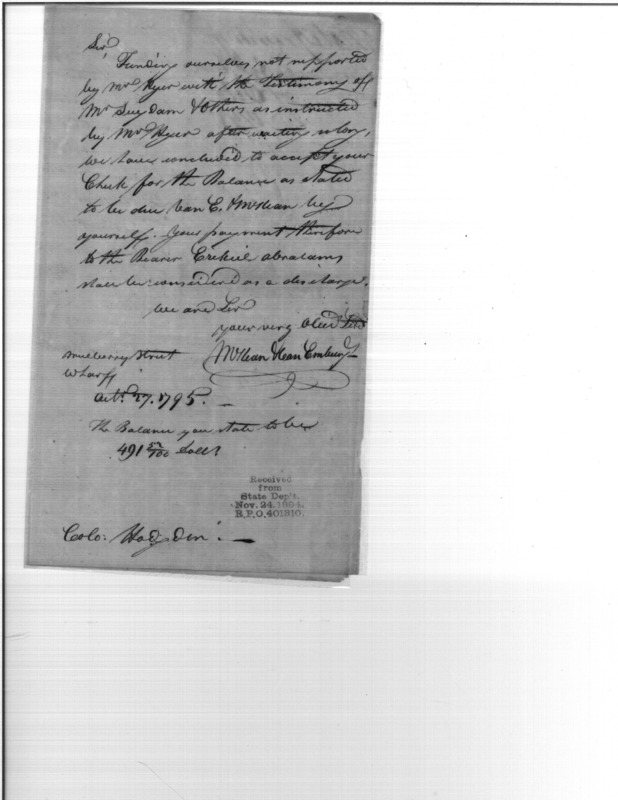 Sir
Finding ourselves not supported
by Mr Hyer with the Testimony of
Mr Suydam & Others as instructed
by Mr Hyer after waiting so long,
we have concluded to accept your
Check for the Balance as stated
to be due Van E. & McKean by
yourself. Your payment therefore
to the Bearer Ezekiel Abrahams
shall be considered as a discharge.
we are Sir
your very Obed
Mulberry Street
Wharf
Octr 27. 1795. —
The Balance you state to be
491 52/100 Dollr
Received
from
State Dep't.
Nov. 24, 1894.
R.P.O. 401810.
Colo: Hodgdon. —